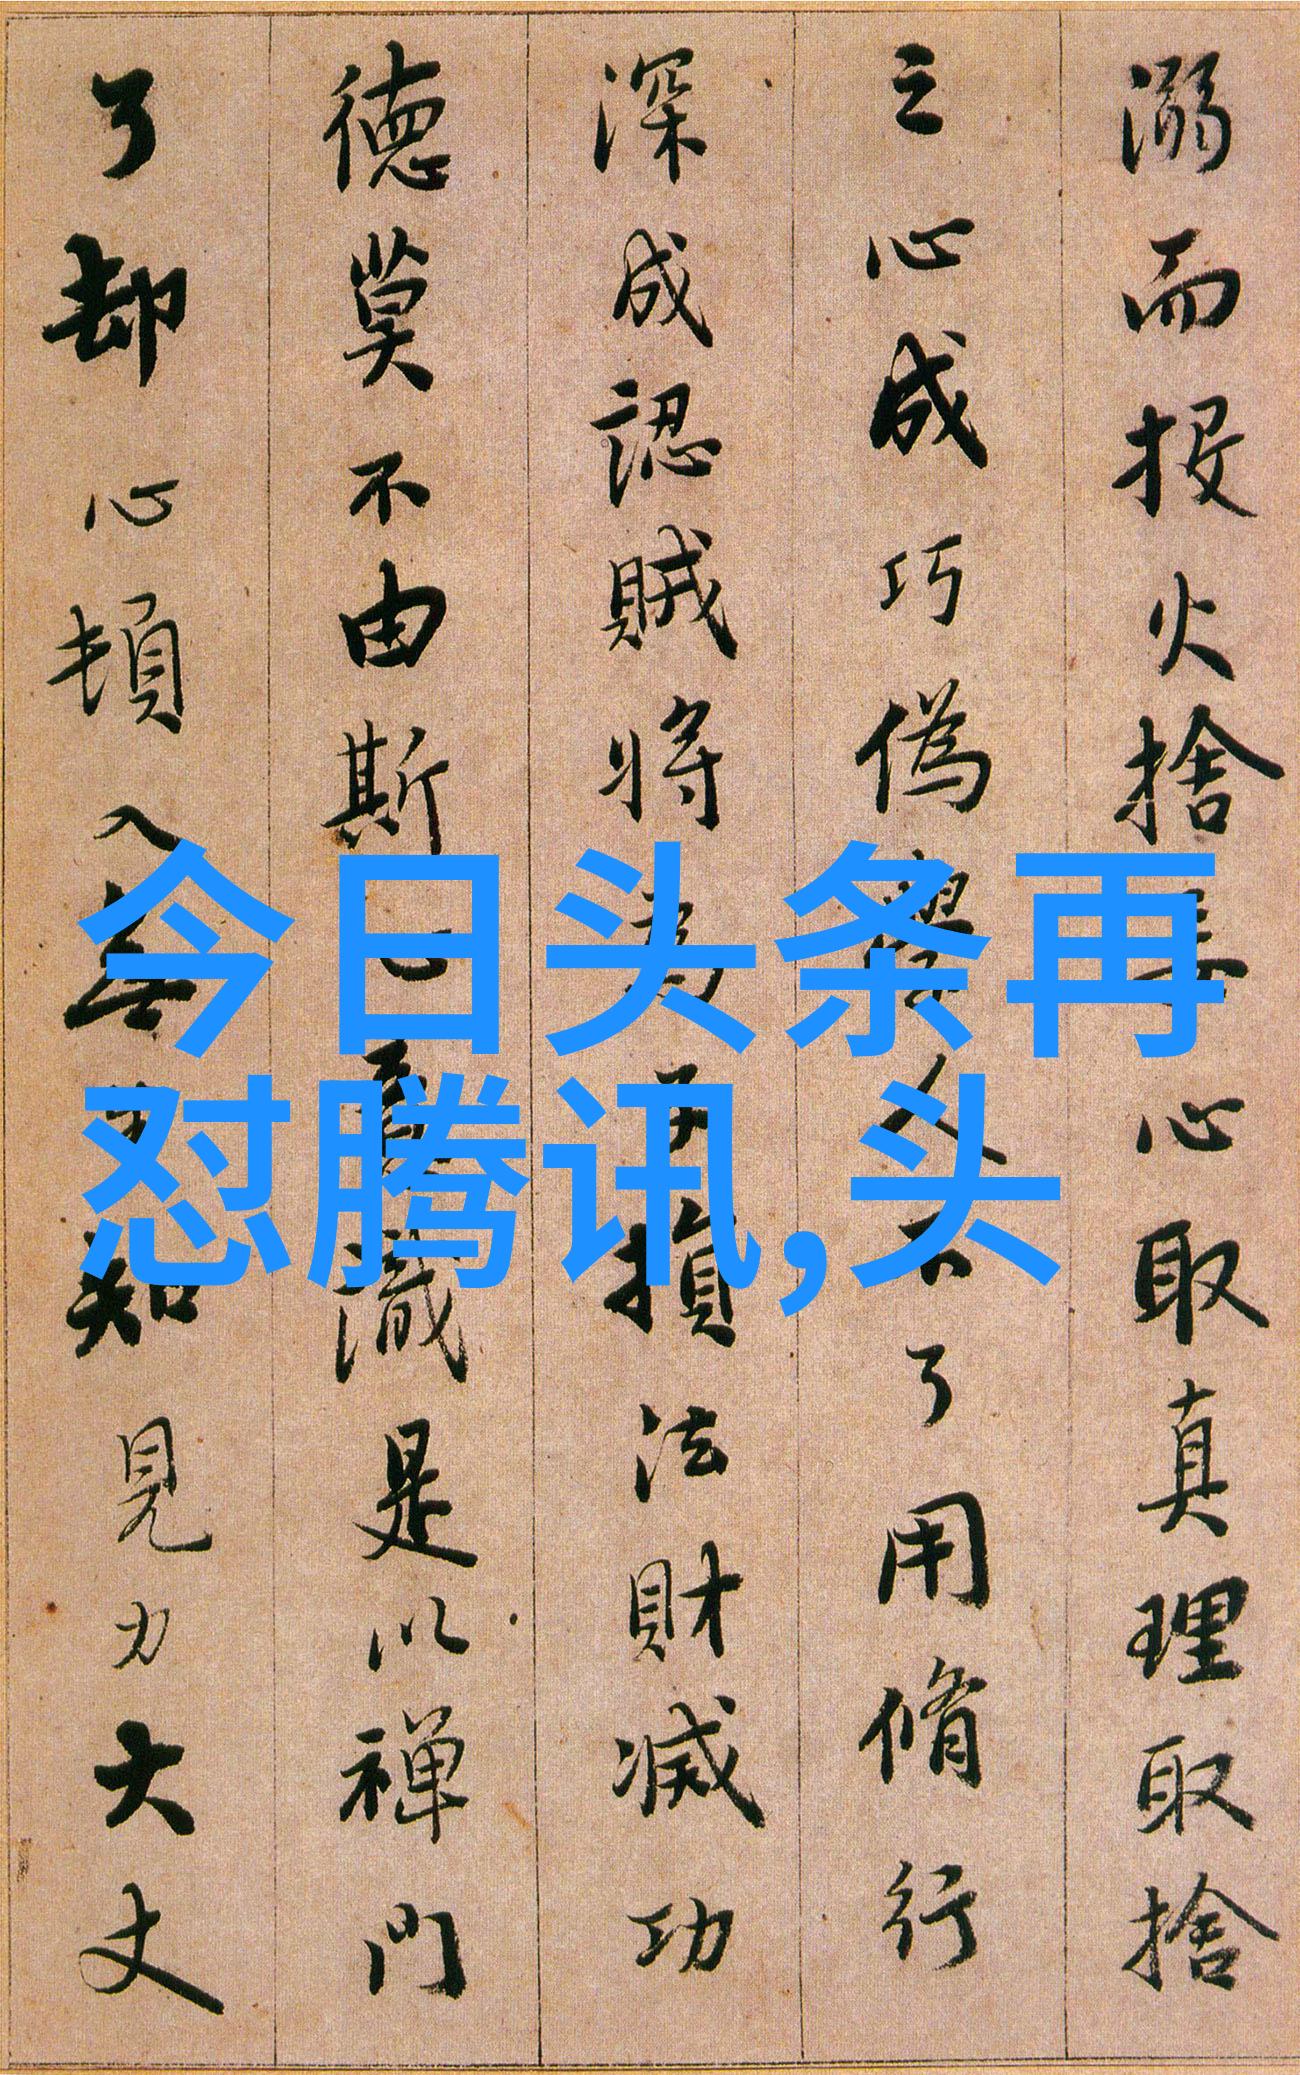 溺而投火捨妄心取真理取捨
之心成巧偽學人不了用脩行
深成認賊将為子損法財滅功
徳莫不由斯心意識是以禅門
了却心頓入無生知見力大丈
今日头条再
怼腾讯,头